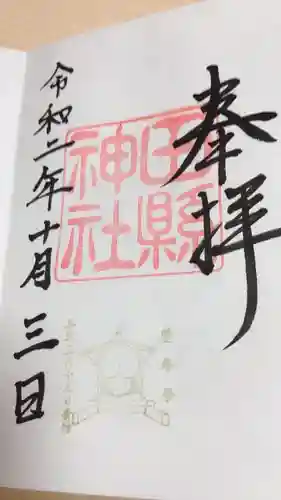 奉拝
田縣
神社
豊年祭
令和二年十月三日